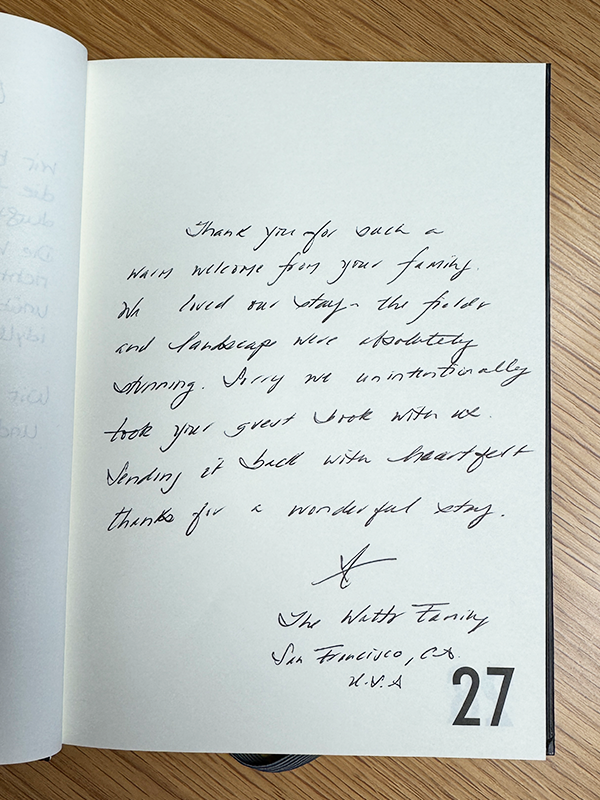 Thank you for such a
warm welcome from your family.
We loved our stay - the fields
and landscape were absolutely
stunning. Sorry we unintentionally
took your guest book with us.
Sending it back with heartfelt
thanks for a wonderful stay.
The Watts Family
San Francisco, CA.
U.S.A
27